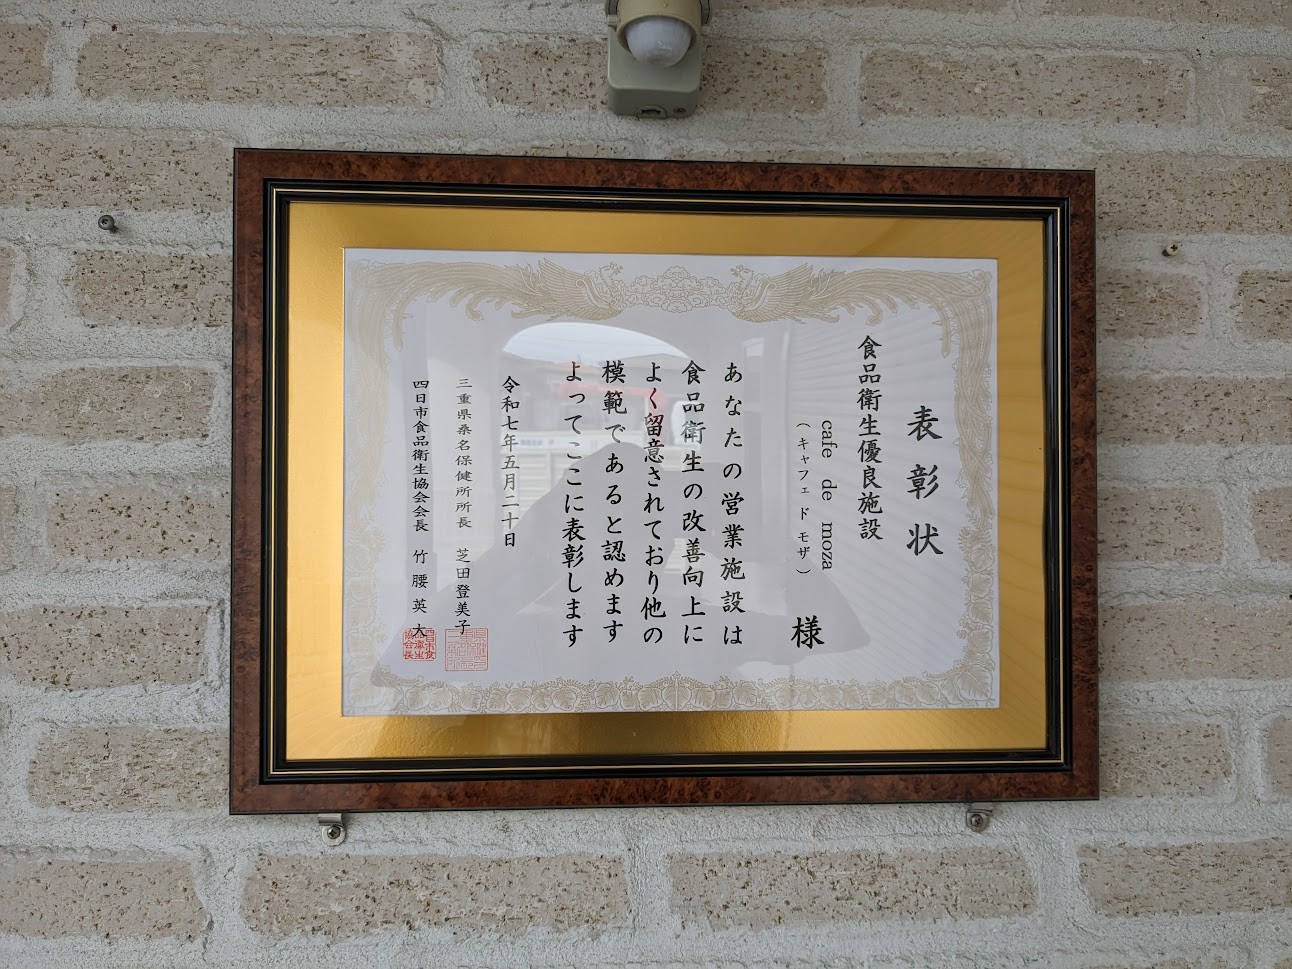 表彰状
食品衛生優良施設
cafe de moza
（キャフェ ド モザ）
様
あなたの営業施設は
食品衛生の改善向上に
よく留意されており他の
模範であると認めます
よってここに表彰します
令和七年五月二十日
三重県桑名保健所所長 芝田登美子
四日市食品衛生協会会長 竹腰英大